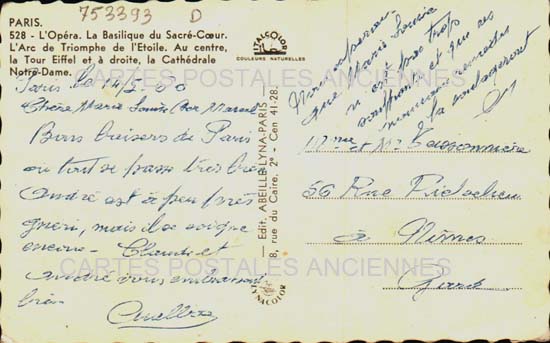 753393 D
PARIS.
528 - L'Opéra. La Basilique du Sacré-Cœur.
L'Arc de Triomphe de l'Etoile. Au centre,
la Tour Eiffel et à droite, la Cathédrale
Notre-Dame.
ITALCOLOR
COULEURS NATURELLES
CARTES POSTALES ANCIENNES
Paris le
Chère Marie Louise Cher Marcel
Bons baisers de Paris
où tout se passe très bien
André est à peu près
guéri, mais il se soigne
encore. Claude et
André vous embrassent
bien
Nous espérons
que Marie Louise
n'a pas trop
souffrante et que ces
nouveaux
la soulageront
Edit. ABEILLE-LYNA-PARIS
8, rue du Caire, 2e - Cen 41-28.
Mme et Mr
56 Rue Richelieu
à Nîmes
Gard
CARTES POSTALES ANCIENNES